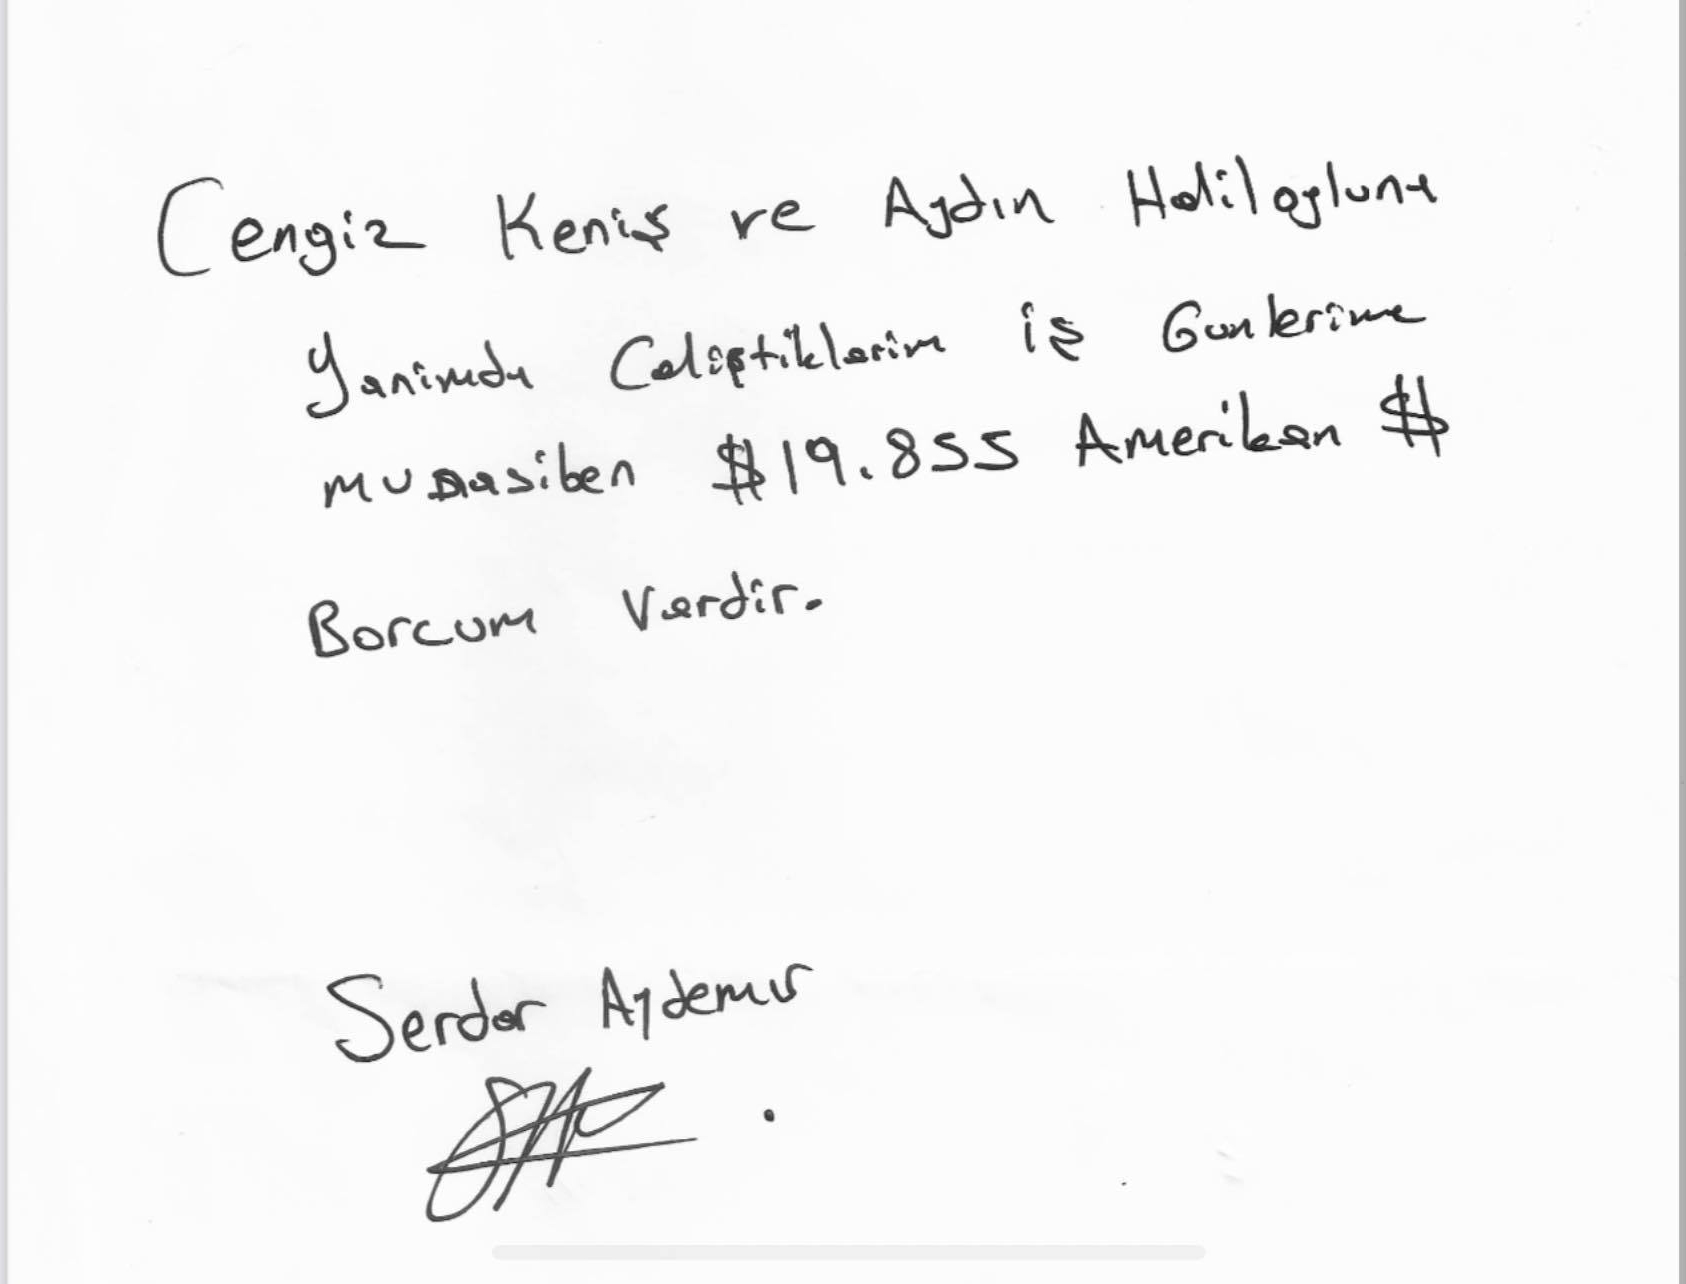 Cengiz Keniş ve Aydın Halilogluna
Yanimda Calıştiklarim iş Gunlerime
munasiben $19.855 Amerikan $
Borcum Vardir.
Serdar Aydemır